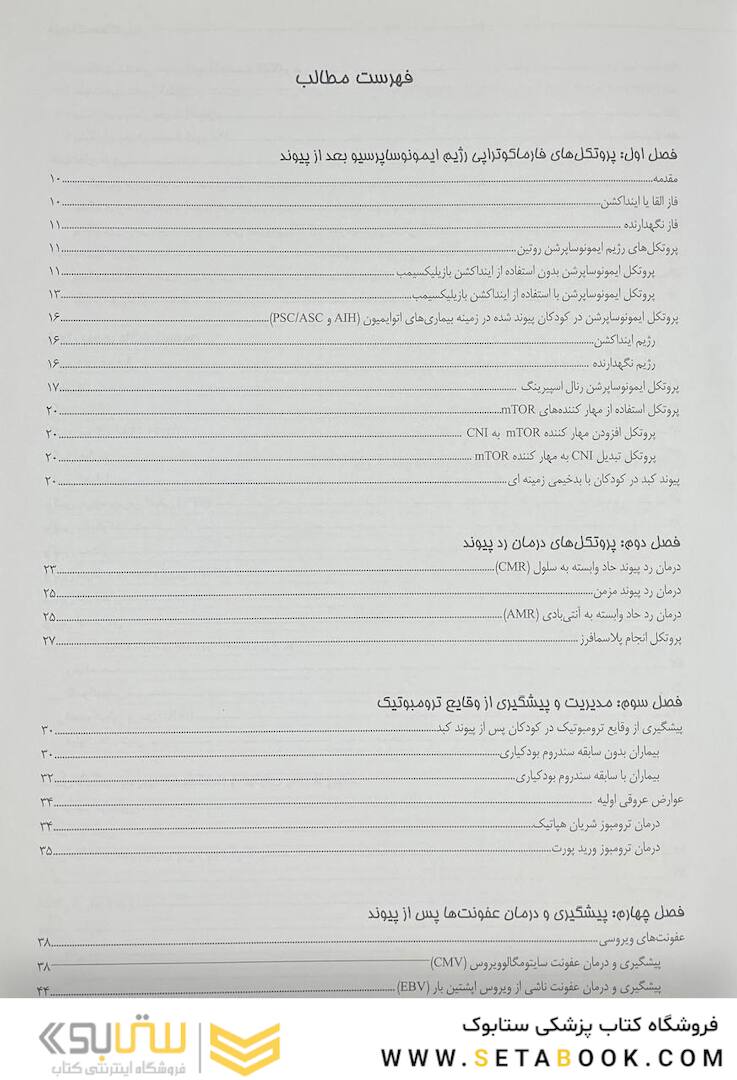 فهرست مطالب
فصل اول: پروتکل‌های فارماکوتراپی رژیم ایمونوساپرسیو بعد از پیوند
مقدمه ۱۰
فاز القا یا اینداکشن ۱۰
فاز نگهدارنده ۱۱
پروتکل‌های رژیم ایمونوساپرشن روتین ۱۱
پروتکل ایمونوساپرشن بدون استفاده از اینداکشن بازیلیکسیمب ۱۱
پروتکل ایمونوساپرشن با استفاده از اینداکشن بازیلیکسیمب ۱۳
پروتکل ایمونوساپرشن در کودکان پیوند شده در زمینه بیماری‌های اتوایمیون (AIH و PSC/ASC) ۱۶
رژیم اینداکشن ۱۶
رژیم نگهدارنده ۱۶
پروتکل ایمونوساپرشن رنال اسپیرینگ ۱۷
پروتکل استفاده از مهار کننده‌های mTOR ۲۰
پروتکل افزودن مهار کننده mTOR به CNI ۲۰
پروتکل تبدیل CNI به مهار کننده mTOR ۲۰
پیوند کبد در کودکان با بدخیمی زمینه ای ۲۰
فصل دوم: پروتکل‌های درمان رد پیوند
درمان رد پیوند حاد وابسته به سلول (CMR) ۲۳
درمان رد پیوند مزمن ۲۵
درمان رد حاد وابسته به آنتی‌بادی (AMR) ۲۵
پروتکل انجام پلاسمافرز ۲۷
فصل سوم: مدیریت و پیشگیری از وقایع ترومبوتیک
پیشگیری از وقایع ترومبوتیک در کودکان پس از پیوند کبد ۳۰
بیماران بدون سابقه سندروم بودکیاری ۳۰
بیماران با سابقه سندروم بودکیاری ۳۲
عوارض عروقی اولیه ۳۴
درمان ترومبوز شریان هپاتیک ۳۴
درمان ترومبوز ورید پورت ۳۵
فصل چهارم: پیشگیری و درمان عفونت‌ها پس از پیوند
عفونت‌های ویروسی ۳۸
پیشگیری و درمان عفونت سایتومگالوویروس (CMV) ۳۸
پیشگیری و درمان عفونت ناشی از ویروس اپشتین بار (EBV) ۴۴
فروشگاه کتاب پزشکی ستابوک
WWW.SETABOOK.COM
ستابوک
فروشگاه اینترنتی کتاب